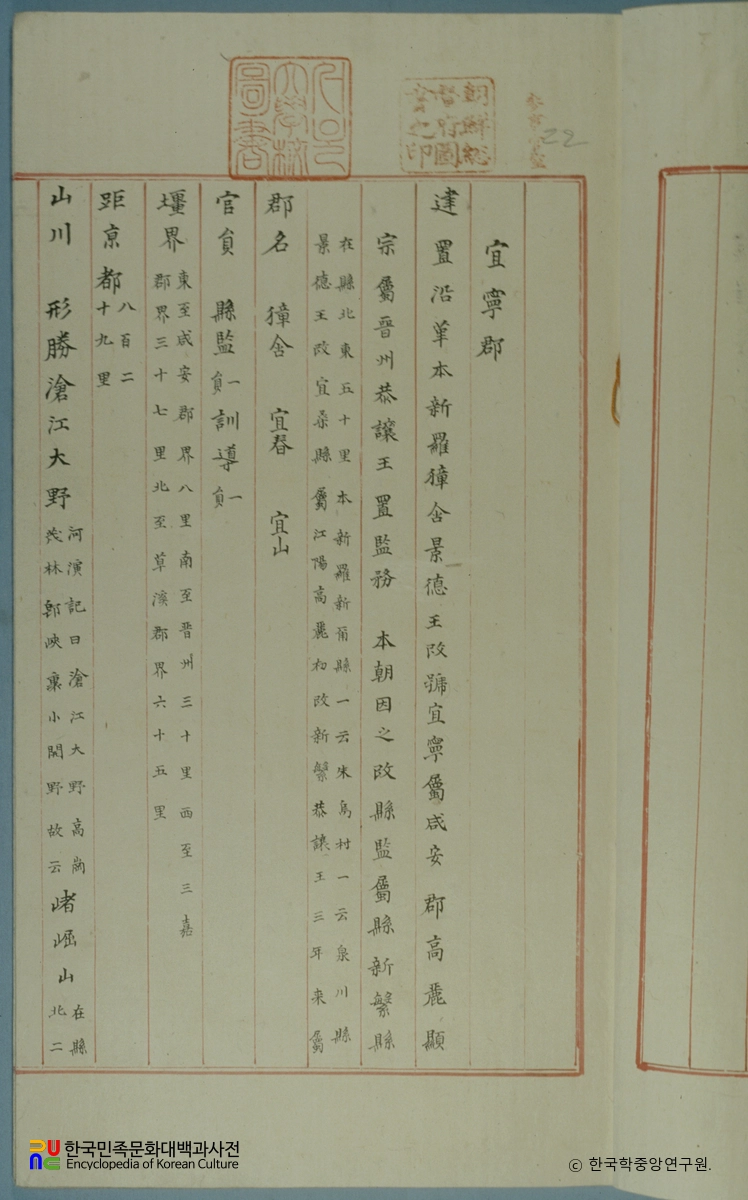 宜寧郡
建置沿革本新羅獐含景德王改號宜寧屬咸安郡高麗顯
宗屬晉州恭讓王置監務 本朝因之改縣監屬縣新繁縣
在縣北東五十里本新羅新爾縣一云朱烏村一云泉川縣
景德王改宜桑縣屬江陽高麗初改新繁恭讓王三年來屬
郡名 獐含 宜春 宜山
官員 縣監一員訓導一員
壃界東至咸安郡界八里南至晉州三十里西至三嘉
郡界三十七里北至草溪郡界六十五里
距京都八百二
十九里
山川 形勝滄江大野河演記曰滄江大野高崗
茂林郊峽裏小開野故云
崵崛山在縣
北二
圖書
大學校
朝鮮總
督府圖
書之印
22
한국민족문화대백과사전
Encyclopedia of Korean Culture
© 한국학중앙연구원.